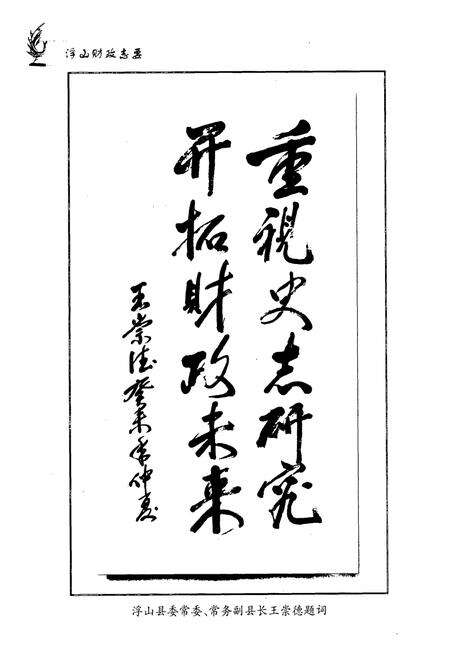 浮山财政志要
重視史志研究
开拓財政未来
王崇德癸未年仲夏
浮山县委常委、常务副县长王崇德题词